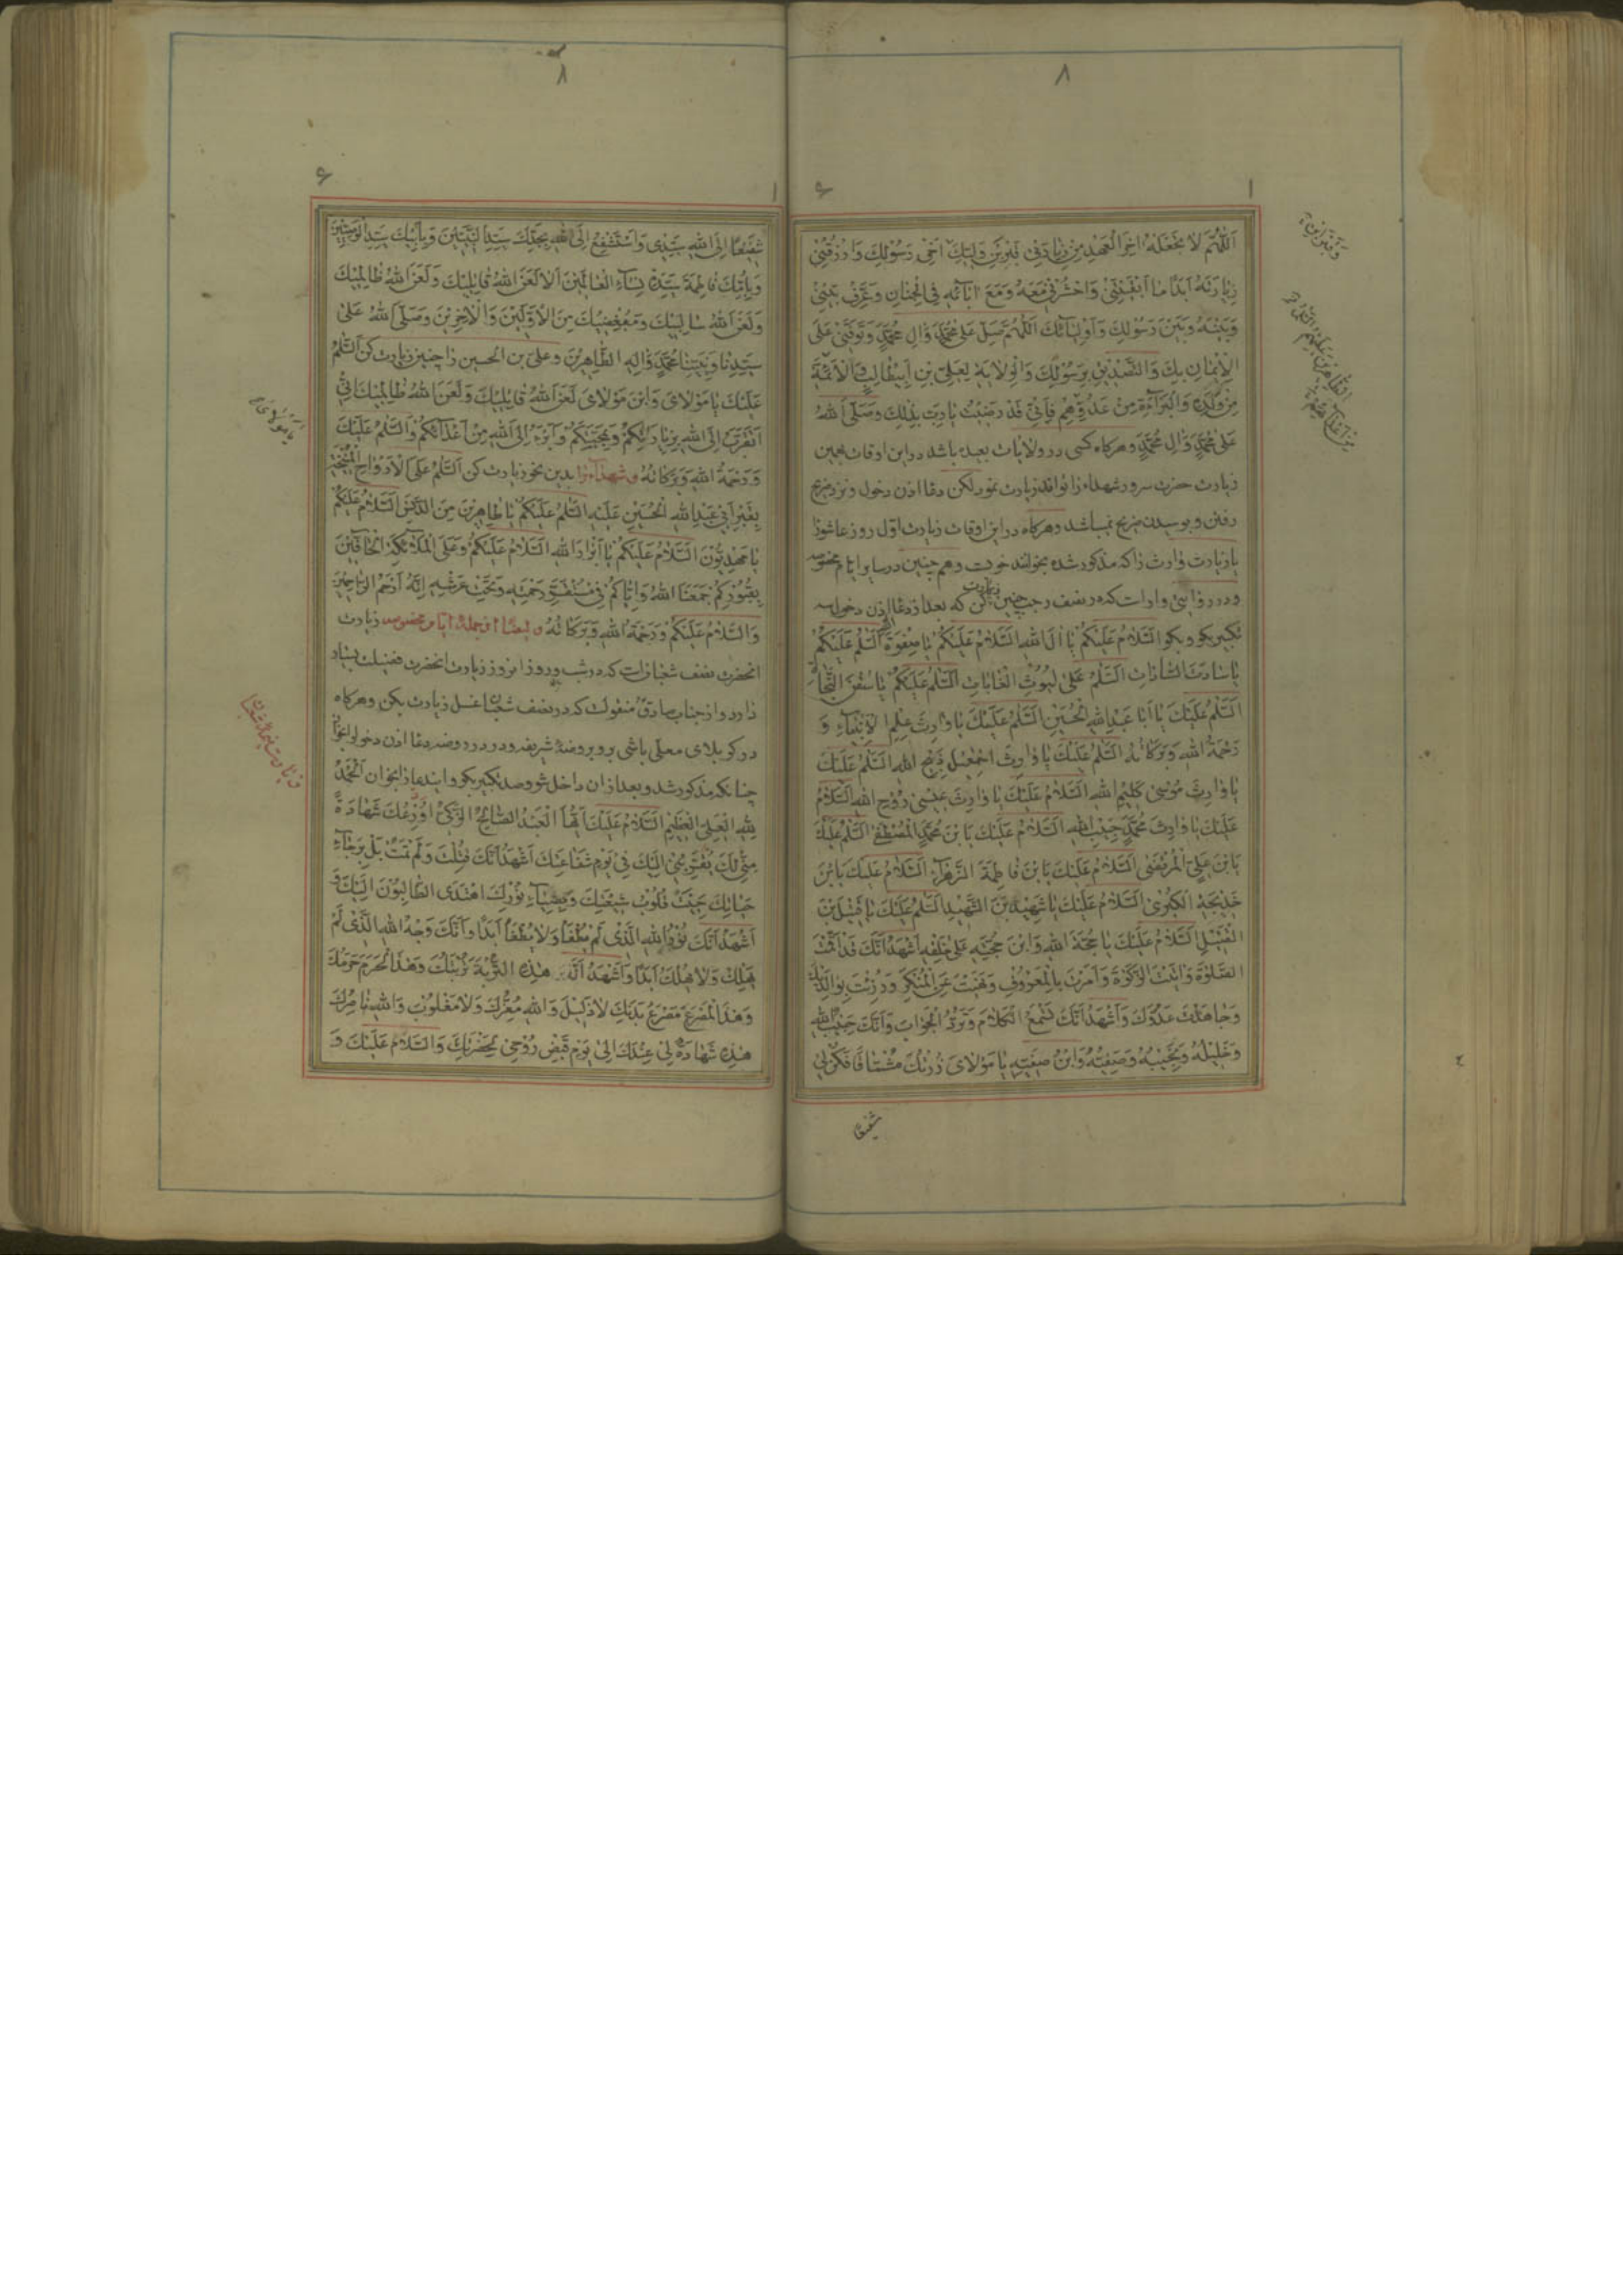 اَللّٰهُمَّ لا تَجْعَلْهُ اٰخِرَ الْعَهْدِ مِنْ زِيارَتي قَبْرَ بْنَ وَلِيِّكَ اَخي رَسُوْلِكَ وَارْزُقْني
زِيارَتَهُ اَبَدًا ما اَبْقَيْتَنِيْ وَاحْشُرْنِيْ مَعَهُ وَمَعَ اٰبائِهِ فِي الْجِنانِ وَعَرِّفْ بَيْنِيْ
وَبَيْنَهُ وَبَيْنَ رَسُوْلِكَ وَاَوْلِيائِكَ اَللّٰهُمَّ صَلِّ عَلىٰ مُحَمَّدٍ وَاٰلِ مُحَمَّدٍ وَتَوَفَّنيْ عَلَى
الْاِيْمٰانِ بِكَ وَالتَّصْدِيْقِ بِرَسُوْلِكَ وَالْوِلايَةِ لِعَلِيِّ بْنِ اَبيْطالِبٍ وَالْاَئِمَّةِ
مِنْ وُلْدِهِ وَالْبَرآءَةِ مِنْ عَدُوِّهِمْ فَاِنّيْ قَدْ رَضِيْتُ يا رَبِّ بِذٰلِكَ وَصَلَّى اللهُ
عَلىٰ مُحَمَّدٍ وَاٰلِ مُحَمَّدٍ وهرکاه کسی در ولایات بعیده باشد در این اوقات همین
زیارت حضرت سرور شهداء را تواند زیارت نمود لکن دعا اذن دخول و نزد ضریح
رفتن و بوسیدن ضریح نمیباشد وهرکاه در این اوقات زیارت اول روز عاشورا
یا زیارت وارث را که مذکور شده بخوانند خوبست وهم چنین در سایر ایام مخصوصه
ودر روایتی وارد است که در نصف رجب چنین زیارت کن که بعد از دعا اذن دخول سه
تکبیر بکو و بکو اَلسَّلامُ عَلَيْكُمْ يا اٰلَ اللهِ اَلسَّلامُ عَلَيْكُمْ يا صِفْوَةَ اللهِ اَلسَّلٰمُ عَلَيْكُمْ
يا ساداتَ السّاداتِ اَلسَّلٰمُ عَلىٰ لُيُوْثِ الْغاباتِ اَلسَّلٰمُ عَلَيْكُمْ يا سُفُنَ النَّجاةِ
اَلسَّلٰمُ عَلَيْكَ يا اَبا عَبْدِاللهِ الْحُسَيْنِ اَلسَّلٰمُ عَلَيْكَ يا وارِثَ عِلْمِ الْاَنْبِيآءِ وَ
رَحْمَةُ اللهِ وَبَرَكاتُهُ اَلسَّلٰمُ عَلَيْكَ يا وارِثَ اِسْمٰعيْلَ ذَبيْحِ اللهِ اَلسَّلٰمُ عَلَيْكَ
يا وارِثَ مُوْسىٰ كَليْمِ اللهِ اَلسَّلامُ عَلَيْكَ يا وارِثَ عِيْسىٰ رُوْحِ اللهِ اَلسَّلامُ
عَلَيْكَ يا وارِثَ مُحَمَّدٍ حَبيْبِ اللهِ اَلسَّلامُ عَلَيْكَ يَا بْنَ مُحَمَّدٍ الْمُصْطَفىٰ اَلسَّلٰمُ عَلَيْكَ
يَا بْنَ عَلِيِّ الْمُرْتَضىٰ اَلسَّلامُ عَلَيْكَ يَا بْنَ فاطِمَةَ الزَّهْرآءِ اَلسَّلامُ عَلَيْكَ يَا بْنَ
خَدِيْجَةِ الْكُبْرىٰ اَلسَّلامُ عَلَيْكَ يا شَهِيْدَ بْنَ الشَّهيْدِ اَلسَّلٰمُ عَلَيْكَ يا قَتيْلَ بْنَ
الْقَتيْلِ اَلسَّلامُ عَلَيْكَ يا حُجَّةَ اللهِ وَابْنَ حُجَّتِهِ عَلىٰ خَلْقِهِ اَشْهَدُ اَنَّكَ قَدْ اَقَمْتَ
الصَّلوٰةَ وَاٰتَيْتَ الزَّكوٰةَ وَاَمَرْتَ بِالْمَعْرُوْفِ وَنَهَيْتَ عَنِ الْمُنْكَرِ وَرُزِئْتَ بِوالِدَيْكَ
وَجاهَدْتَ عَدُوَّكَ وَاَشْهَدُ اَنَّكَ تَسْمَعُ الْكَلامَ وَتَرُدُّ الْجَوابَ وَاَنَّكَ حَبيْبُ اللهِ
وَخَليْلُهُ وَنَجيْبُهُ وَصَفِيُّهُ وَابْنُ صَفِيِّهِ يا مَوْلايَ زُرْتُكَ مُشْتاقًا فَكُنْ ليْ
شفیعا
شَفيْعًا اِلَى اللهِ سَيِّدِيْ وَاَسْتَشْفِعُ اِلَى اللهِ بِجَدِّكَ سَيِّدِ النَّبِيّيْنَ وَبِاَبيْكَ سَيِّدِ الْوَصِيّيْنَ
وَبِاُمِّكَ فاطِمَةَ سَيِّدَةِ نِسآءِ الْعالَميْنَ اَلا لَعَنَ اللهُ قاتِليْكَ وَلَعَنَ اللهُ ظالِميْكَ
وَلَعَنَ اللهُ سالِبيْكَ وَمُبْغِضيْكَ مِنَ الْاَوَّليْنَ وَالْاٰخِريْنَ وَصَلَّى اللهُ عَلىٰ
سَيِّدِنا وَنَبِيِّنا مُحَمَّدٍ وَاٰلِهِ الطّاهِريْنَ وعلی بن الحسین را چنین زیارت کن اَلسَّلٰمُ
عَلَيْكَ يا مَوْلايَ وَابْنَ مَوْلايَ لَعَنَ اللهُ قاتِليْكَ وَلَعَنَ اللهُ ظالِميْكَ اِنّيْ
اَتَقَرَّبُ اِلَى اللهِ بِزِيارَتِكُمْ وَبِمَحَبَّتِكُمْ وَاَبْرَءُ اِلَى اللهِ مِنْ اَعْدآئِكُمْ وَالسَّلٰمُ عَلَيْكَ
وَرَحْمَةُ اللهِ وَبَرَكاتُهُ و شهداء را بدین نحو زیارت کن اَلسَّلٰمُ عَلَى الْاَرْواحِ الْمُنيْخَةِ
بِقَبْرِ اَبيْ عَبْدِ اللهِ الْحُسَيْنِ عَلَيْهِ السَّلٰمُ اَلسَّلٰمُ عَلَيْكُمْ يا طاهِريْنَ مِنَ الدَّنَسِ اَلسَّلامُ عَلَيْكُمْ
يا مَهْدِيُّوْنَ اَلسَّلامُ عَلَيْكُمْ يا اَبْرارَ اللهِ اَلسَّلامُ عَلَيْكُمْ وَعَلَى الْمَلآئِكَةِ الْحآفّيْنَ
بِقُبُوْرِكُمْ جَمَعَنَا اللهُ وَاِيّاكُمْ فيْ مُسْتَقَرِّ رَحْمَتِهِ وَتَحْتَ عَرْشِهِ اِنَّهُ اَرْحَمُ الرّاحِميْنَ
وَالسَّلامُ عَلَيْكُمْ وَرَحْمَةُ اللهِ وَبَرَكاتُهُ و ایضا از جمله ایام مخصوصه زیارت
انحضرت نصف شعبان است که در شب و روز این روز زیارت انحضرت فضیلت بسیار
دارد و از جناب صادق منقولست که در نصف شعبان غسل زیارت بکن وهرکاه
در کربلای معلی باشی برو بروضه شریفه و در در روضه دعا اذن دخول بخوان
چنانکه مذکور شد و بعد از ان داخل شو وصد تکبیر بکو و این دعا را بخوان اَلْحَمْدُ
لِلّٰهِ الْعَلِيِّ الْعَظيْمِ اَلسَّلامُ عَلَيْكَ اَيُّهَا الْعَبْدُ الصّالِحُ الزَّكِيُّ اُوْدِعُكَ شَهادَةً
مِنّيْ لَكَ تُقَرِّبُنيْ اِلَيْكَ فيْ يَوْمِ شَفاعَتِكَ اَشْهَدُ اَنَّكَ قُتِلْتَ وَلَمْ تَمُتْ بَلْ بِرَجآءِ
حَياتِكَ حَيِيَتْ قُلُوْبُ شيْعَتِكَ وَبِضِيآءِ نُوْرِكَ اهْتَدَى الطّالِبُوْنَ اِلَيْكَ وَ
اَشْهَدُ اَنَّكَ نُوْرُ اللهِ الَّذيْ لَمْ يُطْفَأْ وَلا يُطْفَأُ اَبَدًا وَاَنَّكَ وَجْهُ اللهِ الَّذيْ لَمْ
يَهْلِكْ وَلا يُهْلَكُ اَبَدًا وَاَشْهَدُ اَنَّ هٰذِهِ التُّرْبَةَ تُرْبَتُكَ وَهٰذَا الْحَرَمَ حَرَمُكَ
وَهٰذَا الْمَصْرَعَ مَصْرَعُ بَدَنِكَ لا ذَليْلَ وَاللهِ مُعِزُّكَ وَلا مَغْلُوْبَ وَاللهِ ناصِرُكَ
هٰذِهِ شَهادَةٌ ليْ عِنْدَكَ اِلىٰ يَوْمِ قَبْضِ رُوْحيْ بِحَضْرَتِكَ وَالسَّلامُ عَلَيْكَ وَ